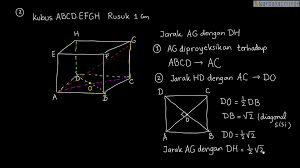 ② Kubus ABCD.EFGH Rusuk 1 cm
H
G
E
F
D
C
O
A
B
Jarak AG dengan DH
① AG diproyeksikan terhadap
ABCD → AC
② Jarak HD dengan AC → DO
D
C
O
A
B
DO = ½ DB
DB = √2 (diagonal
sisi)
DO = ½ √2
Jarak AG dengan DH = ½ √2